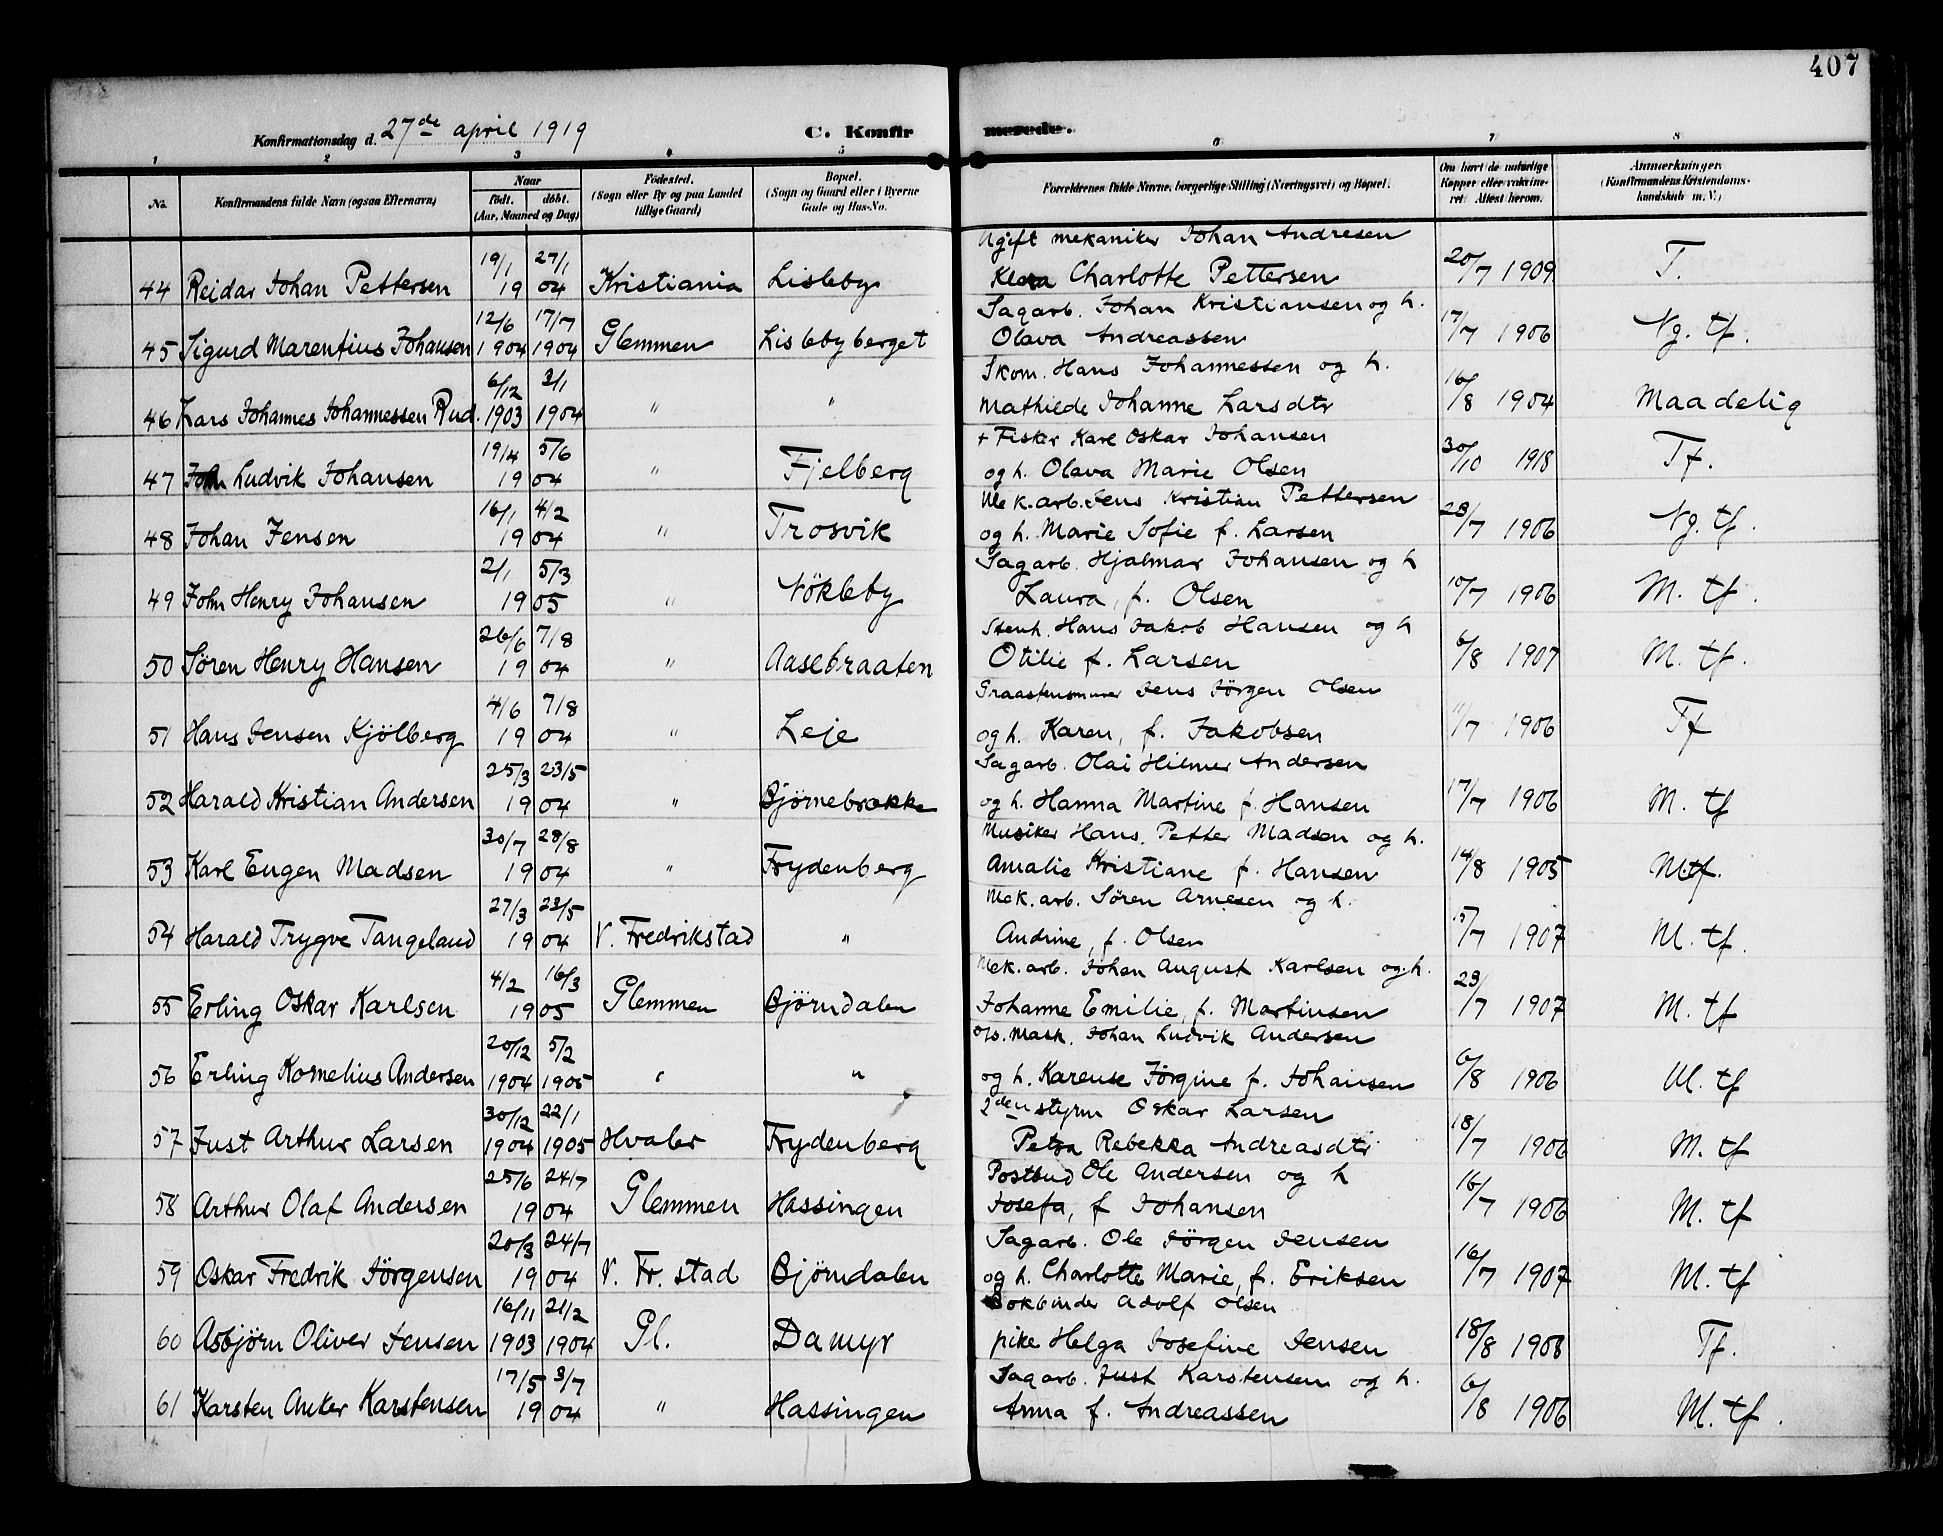 407
Konfirmationsdag d. 27de april 1919
C. Konfirmerede.
1 2 3 4 5 6 7 8
No. Konfirmandens fulde Navn (ogsaa Efternavn) Naar født. døbt. (Aar, Maaned og Dag) Fødested. (Sogn eller By og paa Landet tillige Gaard) Bopæl. (Sogn og Gaard eller i Byerne Gade og Hus-No. Forældrenes fulde Navne, borgerlige Stilling (Næringsvei) og Bopæl. Om havt de naturlige Kopper eller vaksineret: Attest herom. Anmærkninger. (Konfirmandens Kristendomskundskab m. V.)
Ugift mekaniker Johan Andresen
44 Reidar Johan Pettersen 19/1 27/1 1904 Kristiania Lisleby Klara Charlotte Pettersen 20/7 1909 T.
Sagarb. Johan Kristiansen og h.
45 Sigurd Marentius Johansen 12/6 1904 17/7 1904 Glemmen Lislebyberget Olava Andreassen 17/7 1906 Ng. tf.
Skom. Hans Johannessen og h.
46 Lars Johannes Johannessen Rud. 6/12 1903 3/1 1904 " " Mathilde Johanne Larsdtr 16/8 1904 Maadelig
+ Fisker Karl Oskar Johansen
47 John Ludvik Johansen 19/4 5/6 1904 " Fjelberg og h. Olava Marie Olsen 30/10 1918 Tf.
Mek.arb. Jens Kristian Pettersen
48 Johan Jensen 16/1 4/2 1904 " Trosvik og h. Marie Sofie f. Larsen 28/7 1906 Ng. tf.
Sagarb. Hjalmar Johansen og h
49 John Henry Johansen 2/1 5/3 1905 " Nökleby Laura, f. Olsen 10/7 1906 M. tf.
Stenh. Hans Jakob Hansen og h
50 Søren Henry Hansen 26/6 7/8 1904 " Aasebraaten Otilie f. Larsen 6/8 1907 M. tf.
Graastensmurer Jens Jörgen Olsen
51 Hans Jensen Kjölberg 4/6 7/8 1904 " Leje og h. Karen, f. Jakobsen 11/7 1906 Tf
Sagarb. Olai Hilmer Andersen
52 Harald Kristian Andersen 25/3 23/5 1904 " Bjørnebrække og h. Hanna Martine f. Hansen 17/7 1906 M. tf
Musiker Hans Petter Madsen og h.
53 Karl Eugen Madsen 30/7 28/8 1904 " Frydenberg Amalie Kristiane f. Hansen 14/8 1905 M.tf.
Mek. arb. Søren Arnesen og h.
54 Harald Trygve Tangeland 27/3 23/5 1904 V. Fredrikstad " Andrine, f. Olsen 15/7 1907 M. tf.
Mek. arb. Johan August Karlsen og h.
55 Erling Oskar Karlsen 4/2 16/3 1905 Glemmen Bjørndalen Johanne Emilie, f. Martinsen 23/7 1907 M. tf
Mask. Johan Ludvik Andersen
56 Erling Kornelius Andersen 20/12 1904 5/2 1905 " " og h. Karense Jørgine f. Johansen 6/8 1906 M. tf
2den styrm Oskar Larsen
57 Just Arthur Larsen 30/12 1904 22/1 1905 Hvaler Frydenberg Petra Rebekka Andreasdtr 18/7 1906 M. tf
Postbud Ole Andersen og h
58 Arthur Olaf Andersen 25/6 24/7 1904 Glemmen Hassingen Josefa, f Johansen 16/7 1906 M. tf
Sagarb. Ole Jörgen Jensen
59 Oskar Fredrik Jörgensen 20/3 24/7 1904 V. Fr. stad Bjørndalen og h. Charlotte Marie, f. Eriksen 16/7 1907 M. tf
Bokbinder Adolf Olsen
60 Asbjørn Oliver Jensen 16/11 1903 21/2 1904 Gl. Damyr pike Helga Josefine Jensen 18/8 1908 Tf.
Sagarb. Just Karstensen og h.
61 Karsten Anker Karstensen 17/5 3/7 1904 " Hassingen Anna f. Andreassen 6/8 1906 M. tf.